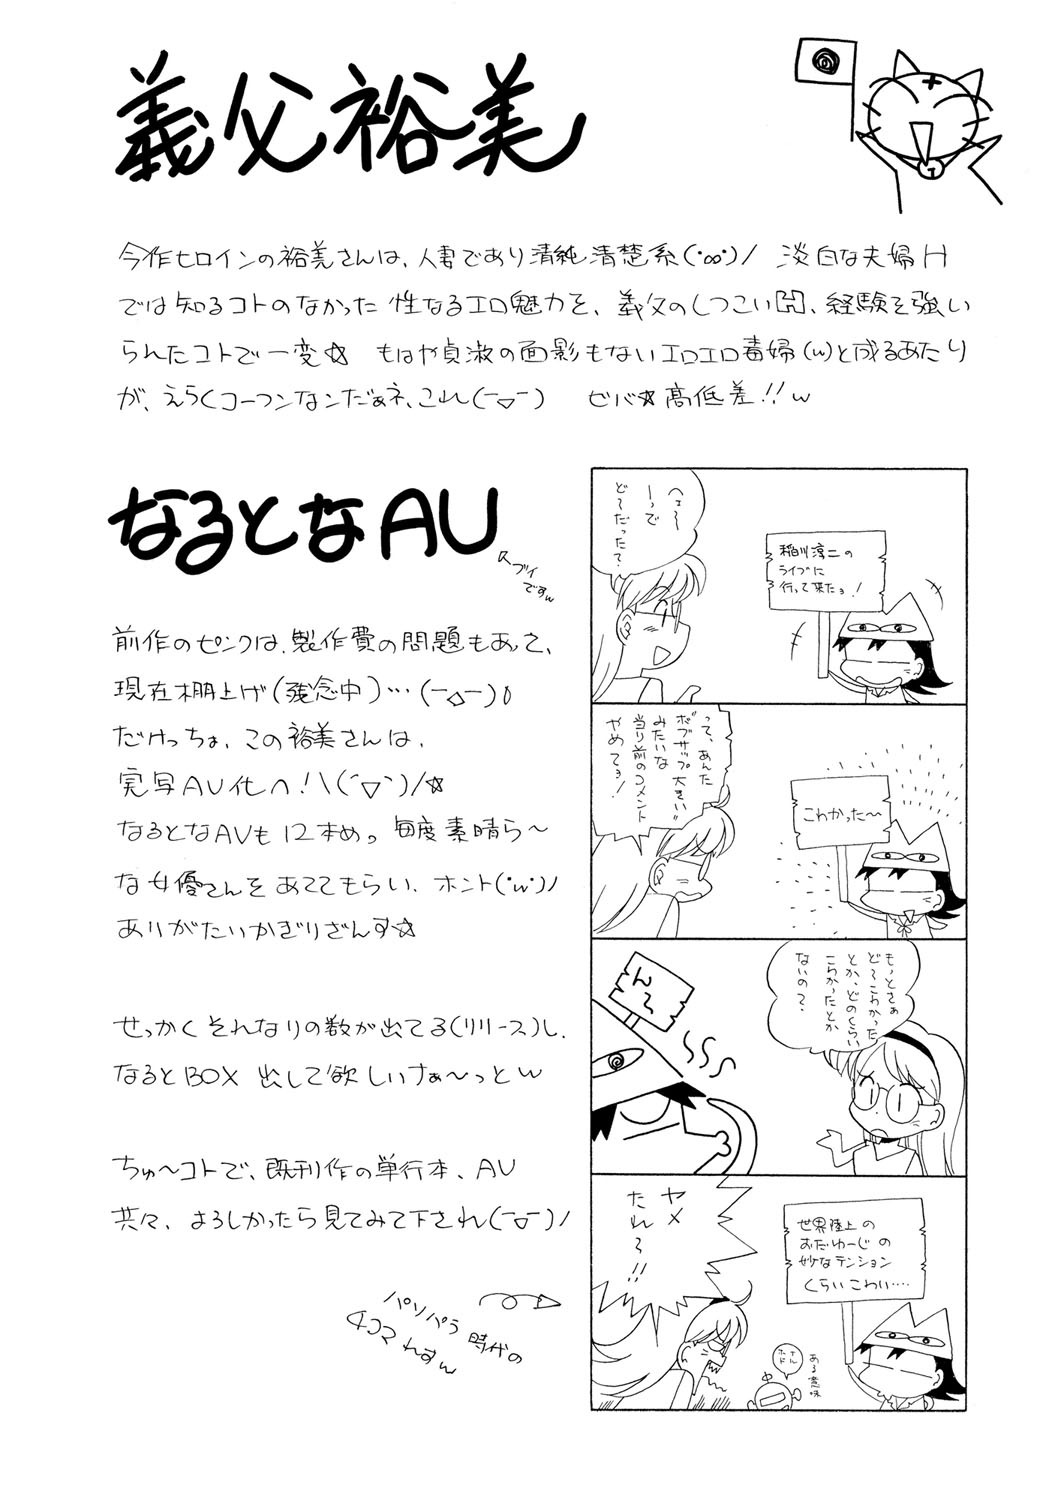 義父裕美
今作ヒロインの裕美さんは、人妻であり清純清楚系(・∞・)/ 淡白な夫婦H
では知るコトのなかった 性なるエロ魅力を、義父のしつこい 、経験を強い
られたコトで一変☆ もはや貞淑の面影もないエロエロ毒婦(w)と成るあたり
が、えらくコーフンなンだぁネ、これ(ー▽ー) ビバ☆高低差!!w
なるとなAU
スブイ
ですw
前作のピンクは、製作費の問題もあって、
現在棚上げ(残念中)…(ー△ー)0
だけっちょ、この裕美さんは、
実写AV化へ!\(´▽`)/☆
なるとなAVも12本めっ 毎度素晴ら〜
な女優さんをあててもらい、ホント(・w・)ノ
ありがたいかぎりざんす☆
せっかくそれなりの数が出てる(リリース)し、
なるとBOX 出して欲しいけぁ〜っとw
ちゅ〜コトで、既刊作の単行本、AU
共々、よろしかったら見てみて下され(ー▽ー)ノ
パソパラ時代の
4コマれすw
稲川淳二の
ライブに
行って来たョ!
へェ〜
ーっで
ど〜だった?
こわかった〜
って、あんた
ボブサップ大きい″
みたいな
当り前のコメント
やめてョ!
も〜とさぁ
ど〜こわかった
とか、どのくらい
こわかったとか
ないの?
ん〜
世界陸上の
おだゆーじの
妙なテンション
くらいこわい‥‥
ヤメ
たれ〜!!
ある意味
ナル
ホド